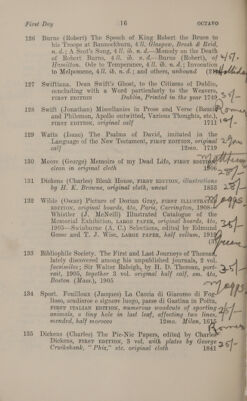 First Day 16 OCTAVO
126 Burns (Robert) The Speech of King Robert the Bruce to
his Troops at Bannockburn, 4 ll. Glasgow, Brash & Reid,
n. d.; A Scot's Song, 4 ll. n. d.—Monody on the Death
of Robert Burns, 4 ll. n. d.—Burns (Robert), of
Hamilton. Ode to Temperance, 4 ll. n. d.; Invocation
to Melpomene, 4 ll. n. d.; and others, unbound
127 Swiftiana. Dean Swift's Ghost, to the Citizens of Dublin,
concluding with a Word particularly to the Weavers,
FIRST EDITION Dublin, Printed in the year
128 Swift (Jonathan) Miscellanies in Prose and Verse
and Philemon, Apollo outwitted, Various Thoughts, etc.),
FIRST EDITION, original calf 1711
129 Watts (Isaac) The Psalms of David, imitated in the
Language of the New Testament, FIRST EDITION, original
calf 12mo. 1719
130 Moore (George) Memoirs of my Dead Life, FIRST EDITION,
clean in original cloth 1906
131 Dickens (Charles) Bleak House, FIRST EDITION, illustrations
by H. K. Browne, original cloth, uncut 1853
132 Wilde (Oscar) Picture of Dorian Gray, FIRST
EDITION, original boards, 4to, Paris, Carrington, 1908—
Whistler (J. McNeill) Illustrated Catalogue of the
Memorial Exhibition, LARGE PAPER, original boards, 4to,
1905—Swinburne (A. C.) Selections, edited by Edmund
Gosse and T. J. Wise, LARGE PAPER, half vellum,
133 Bibliophile Society. The First and Last Journeys of Thoreau,
lately discovered among his unpublished journals, 2 vol.
facsimiles; Sir Walter Raleigh, by H. D. Thoreau, portrait,
1905, together 3 vol. original half calf, sm. 4to,
Boston (Mass.), 1905
134 Sport. Fouilloux (Jacques) La Caccia di Giacomo di Foglioso,
scudiero e signore luogo, paese di Gastina in Poitu,
FIRST ITALIAN EDITION, numerous woodcuts of sporting
animals, a tiny hole in last leaf, affecting two lines,
mended, half morocco 12mo. Milan, 1615
135 Dickens (Charles) The Pic-Nic Papers, edited by Charles
Dickens, FIRST EDITION, 3 vol. with plates by George
Cruikshank, "Phiz," etc. original cloth 1841